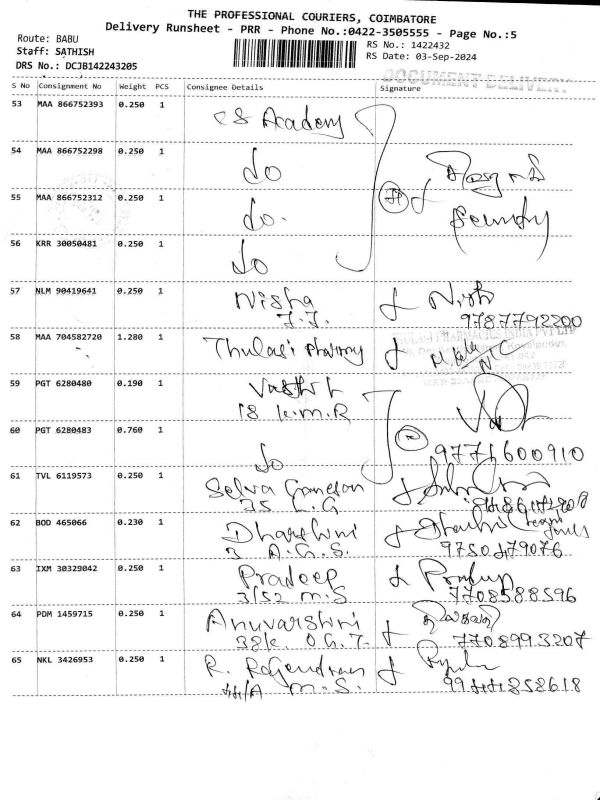 THE PROFESSIONAL COURIERS, COIMBATORE
Delivery Runsheet - PRR - Phone No.:0422-3505555 - Page No.:5
Route: BABU
Staff: SATHISH
DRS No.: DCJB142243205
RS No.: 1422432
RS Date: 03-Sep-2024
DOCUMENT DELIVERY
S No Consignment No Weight PCS Consignee Details Signature
53 MAA 866752393 0.250 1 CS Academy
54 MAA 866752298 0.250 1 do
55 MAA 866752312 0.250 1 do. Security
56 KRR 30050481 0.250 1 do
57 NLM 90419641 0.250 1 Nisha
J.J. 9787792200
58 MAA 704582720 1.280 1 Thulasi Pharmacy
59 PGT 6280480 0.190 1
18 K.M.R
60 PGT 6280483 0.760 1 do
61 TVL 6119573 0.250 1 Selva Ganesan
35 L.G
62 BOD 465066 0.230 1 Dharshini
3 A.G.S. 9750479076
63 IXM 30329042 0.250 1 Pradeep
3/52 M.S 7708588596
64 PDM 1459715 0.250 1 Anuvarshni
38k. O.G.T. 7708993207
65 NKL 3426953 0.250 1 R. Rajendran
44/A M.S. 9944858618